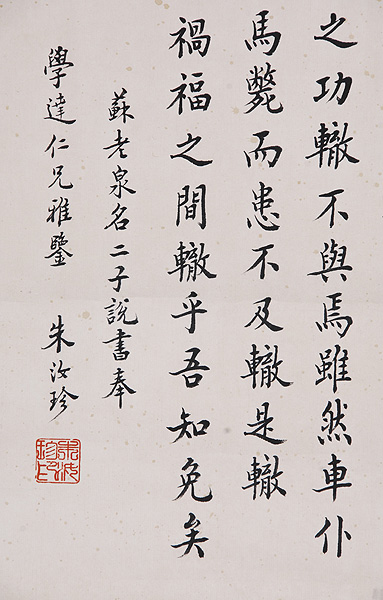 之功轍不與焉雖然車仆
馬斃而患不及轍是轍
禍福之間轍乎吾知免矣
蘇老泉名二子說書奉
學達仁兄雅鑒 朱汝珍
朱汝珍印